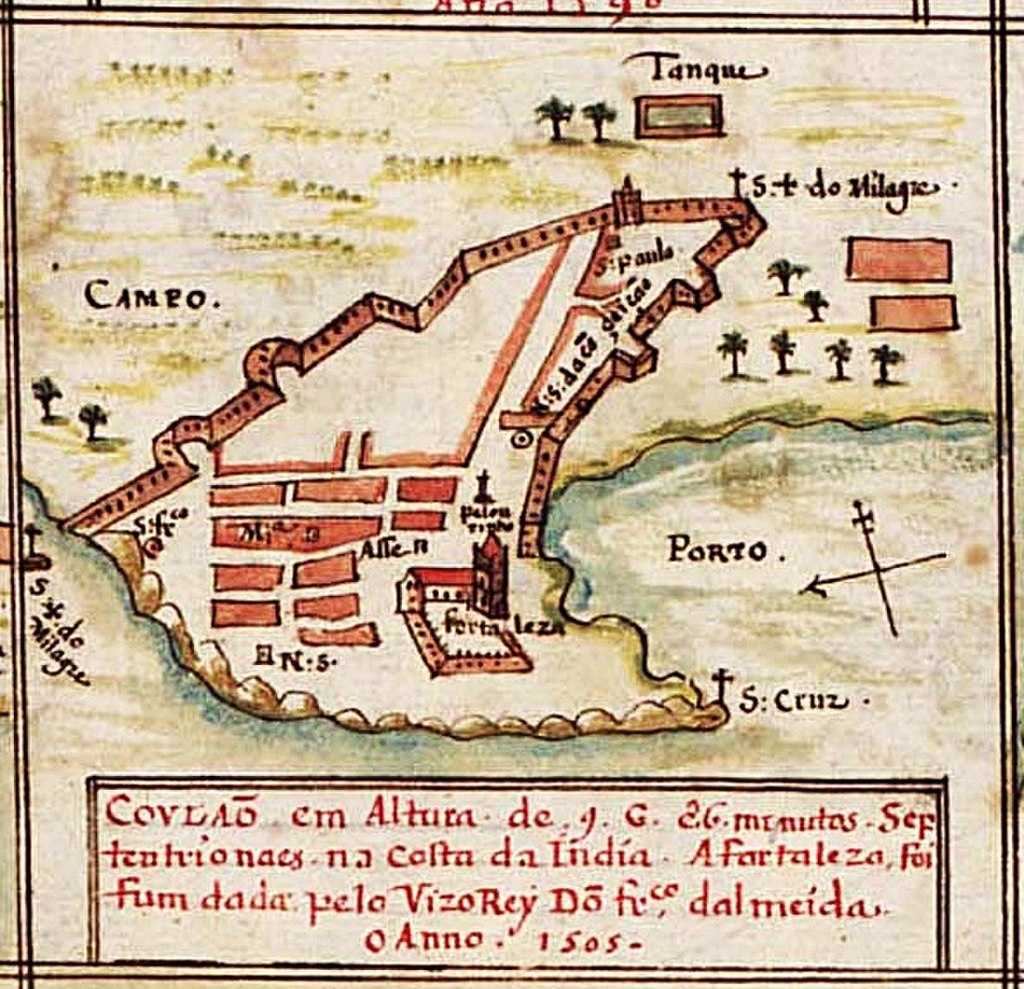 Tanque
S: + do Milagre ·
S: paulo
CAMPO.
N: S: da cõ ceicão
S: frco
Mia
Asse
pelou
rinho
PORTO.
fortaleza
S: + do
Milagre
N: S·
S: Cruz ·
COVLAÕ em Altura · de · 9 · G · 26 · minutos · Sep
tentrionaes · na Costa da India · A fortaleza, foi
fumdada pelo VizoRey Dõ frco dalmeida.
O Anno. 1505-